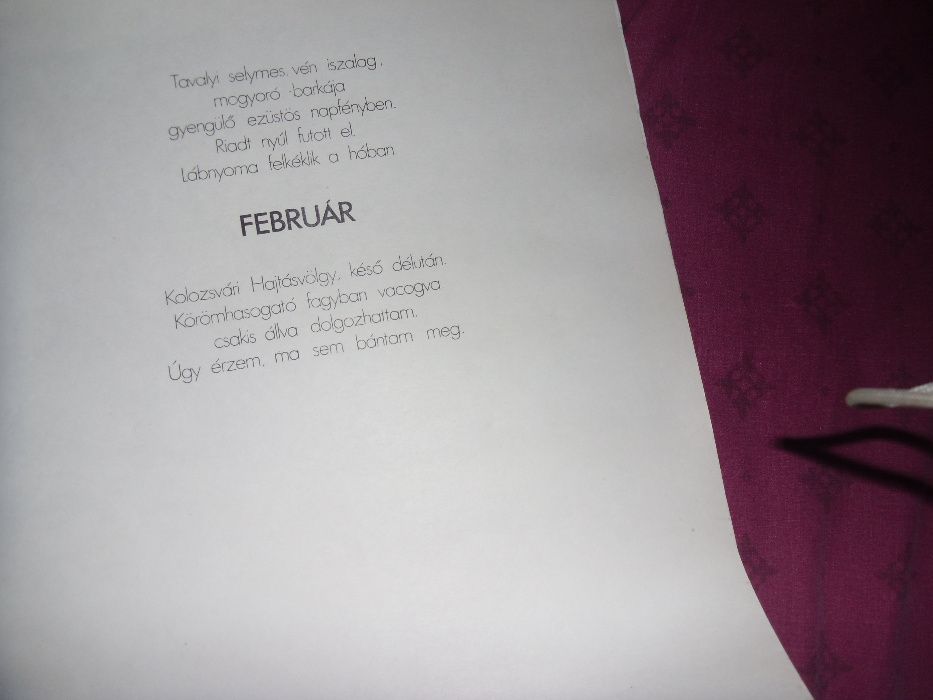 Tavalyi selymes, vén iszalag,
mogyoró -barkája
gyengülő ezüstös napfényben.
Riadt nyúl futott el.
Lábnyoma felkéklik a hóban.
FEBRUÁR
Kolozsvári Hajtásvölgy, késő délután.
Körömhasogató fagyban vacogva
csakis állva dolgozhattam.
Úgy érzem, ma sem bántam meg.